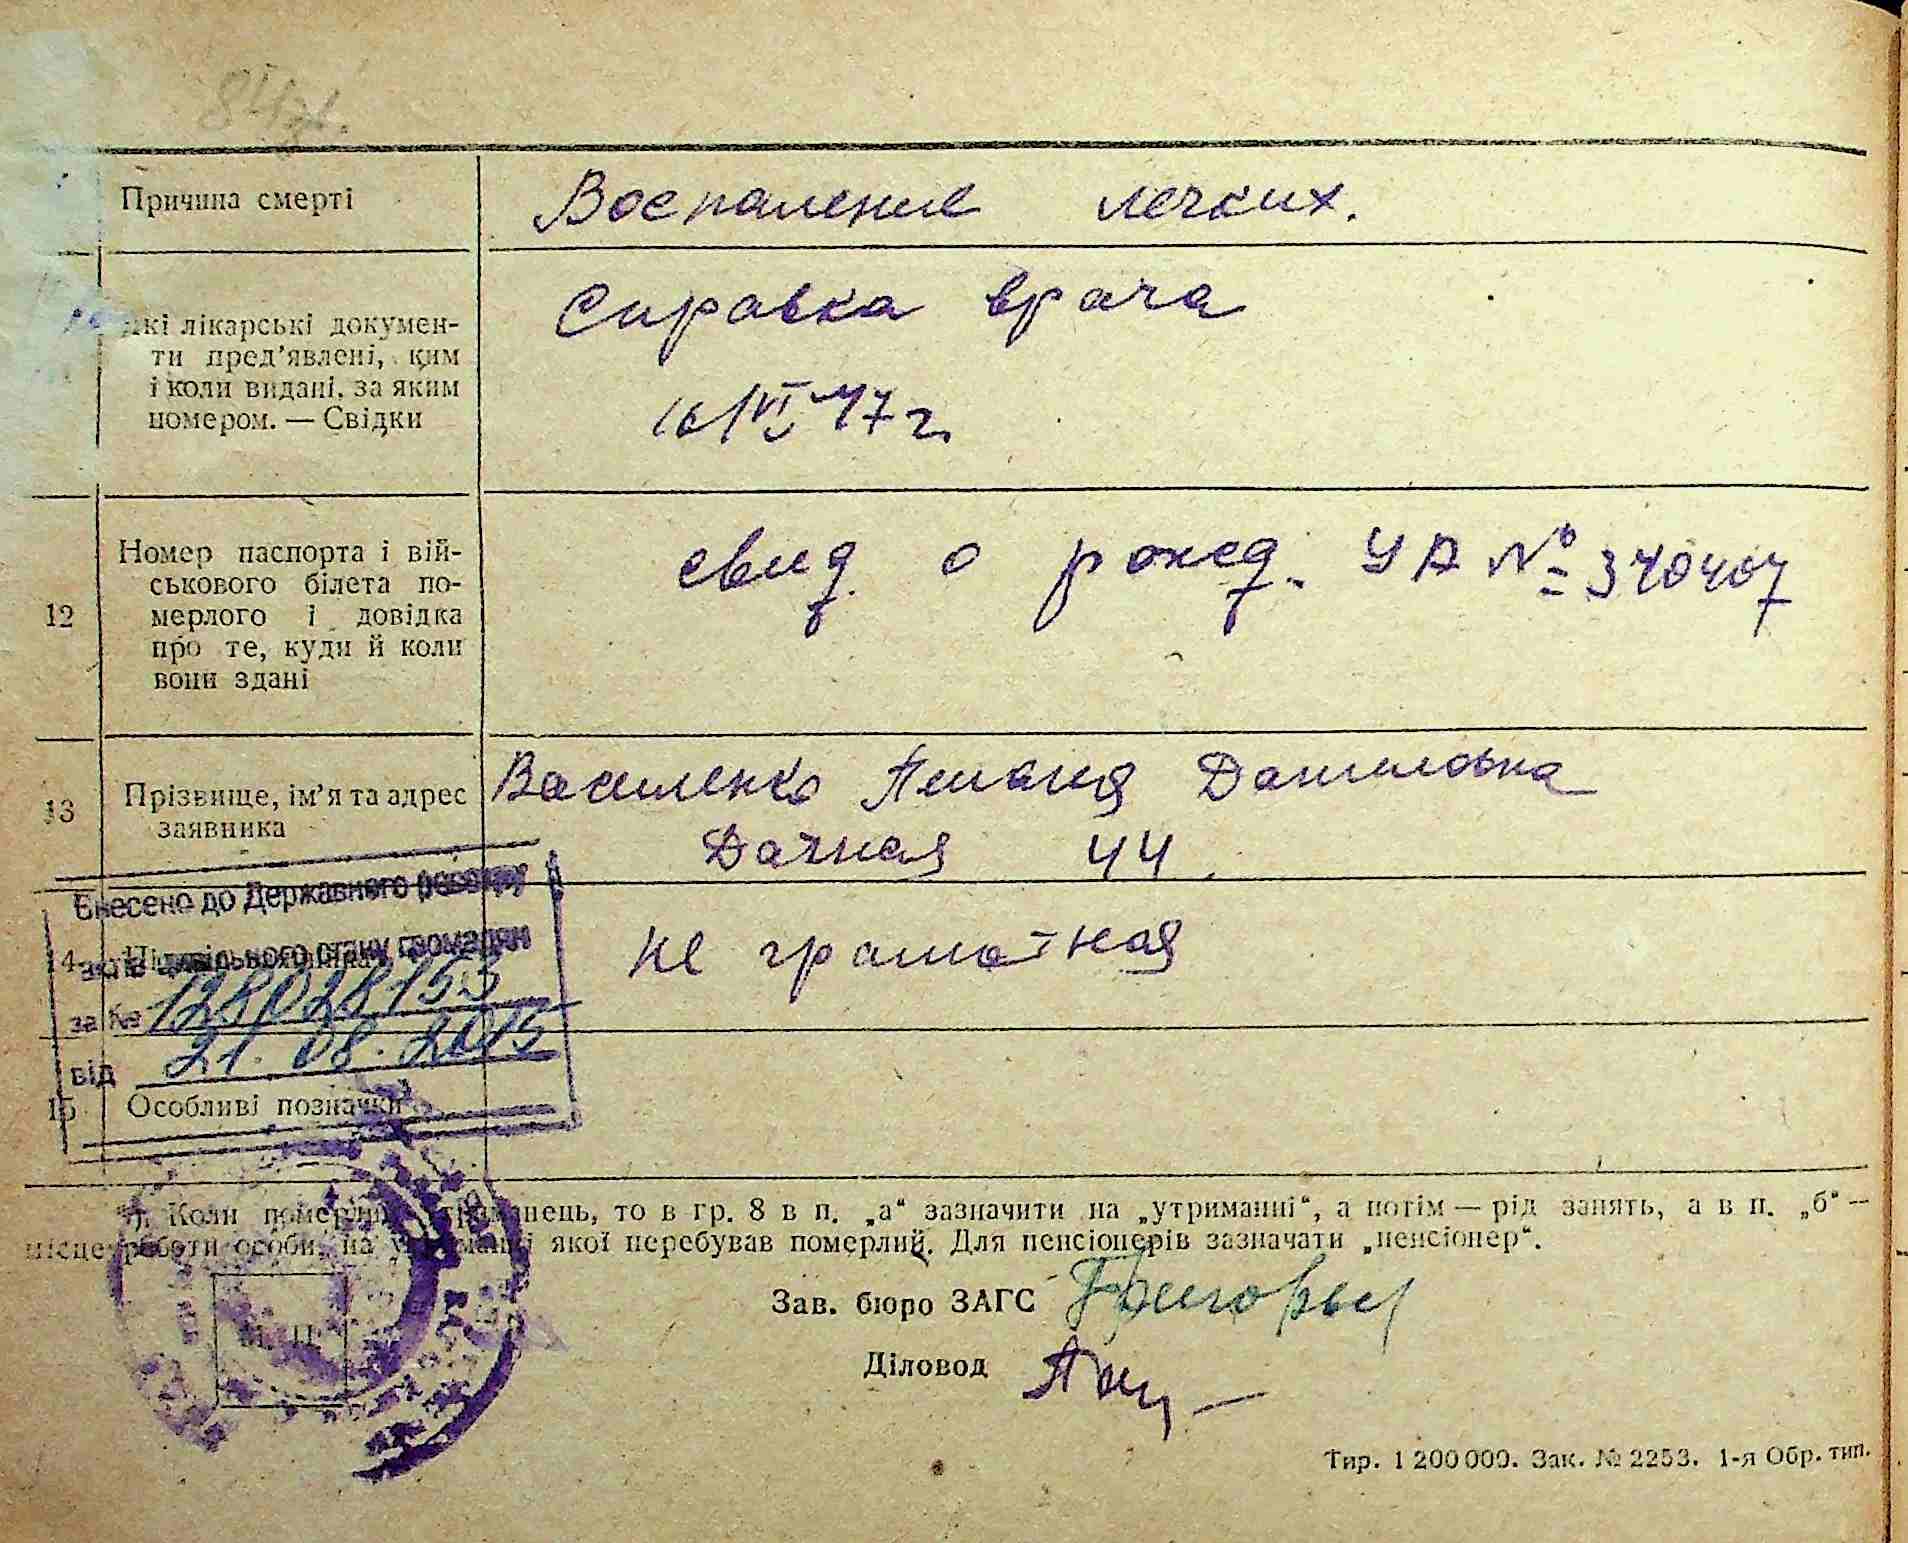 Причина смерті
Воспаление легких.
Які лікарські докумен-
ти пред’явлені, ким
і коли видані, за яким
номером. — Свідки
Справка врача
16/VI 47 г.
12
Номер паспорта і вій-
ськового білета по-
мерлого і довідка
про те, куди й коли
вони здані
свид. о рожд. УА № 340407
13
Прізвище, ім’я та адрес
заявника
Василенко Даниловна
Дачная 44
Внесено до Державного реєстру
актів цивільного стану громадян
за № 128028153
від 21.08.2015
14
не грамотная
15
Особливі позначки
Коли померлий утриманець, то в гр. 8 в п. „а“ зазначити на „утриманні“, а потім — рід занять, а в п. „б“ —
місце роботи особи, на утриманні якої перебував померлий. Для пенсіонерів зазначати „пенсіонер“.
Зав. бюро ЗАГС
Діловод
М. П.
Тир. 1 200 000. Зак. № 2253. 1-я Обр. тип.